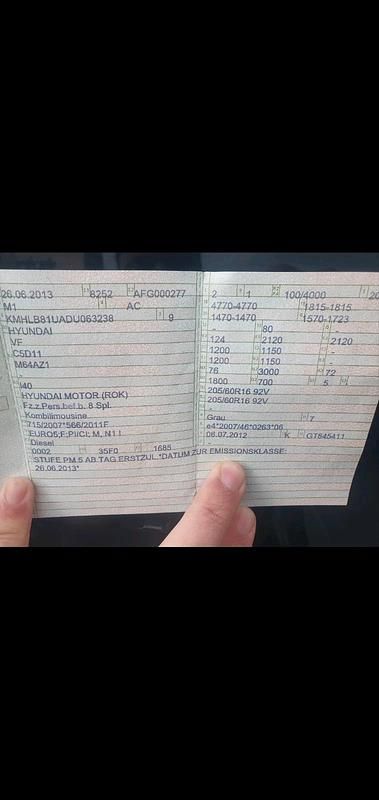 26.06.2013 8252 AFG000277
M1 AC
KMHLB81UADU063238 9
HYUNDAI
VF
C5D11
M64AZ1
-
I40
HYUNDAI MOTOR (ROK)
Fz.z.Pers.bef.b. 8 Spl.
Kombilimousine
715/2007*566/2011F
EURO5;F;PI/CI; M, N1 I
Diesel
0002 35F0 1685
STUFE PM 5 AB TAG ERSTZUL.*DATUM ZUR EMISSIONSKLASSE:
26.06.2013*
2 1 100/4000
4770-4770 1815-1815
1470-1470 1570-1723
- 80 -
124 2120 2120
1200 1150 -
1200 1150 -
76 3000 72
1800 700 5
205/60R16 92V
205/60R16 92V
-
Grau 7
e4*2007/46*0263*06
06.07.2012 K GT845411
-